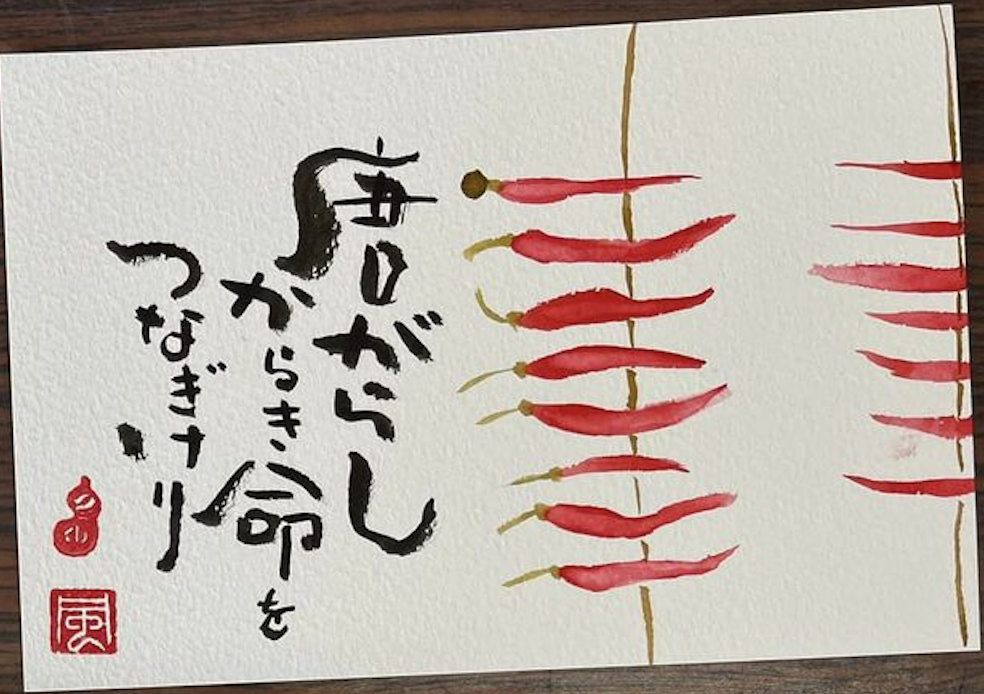 唐がらし
からき命を
つなぎけり
風